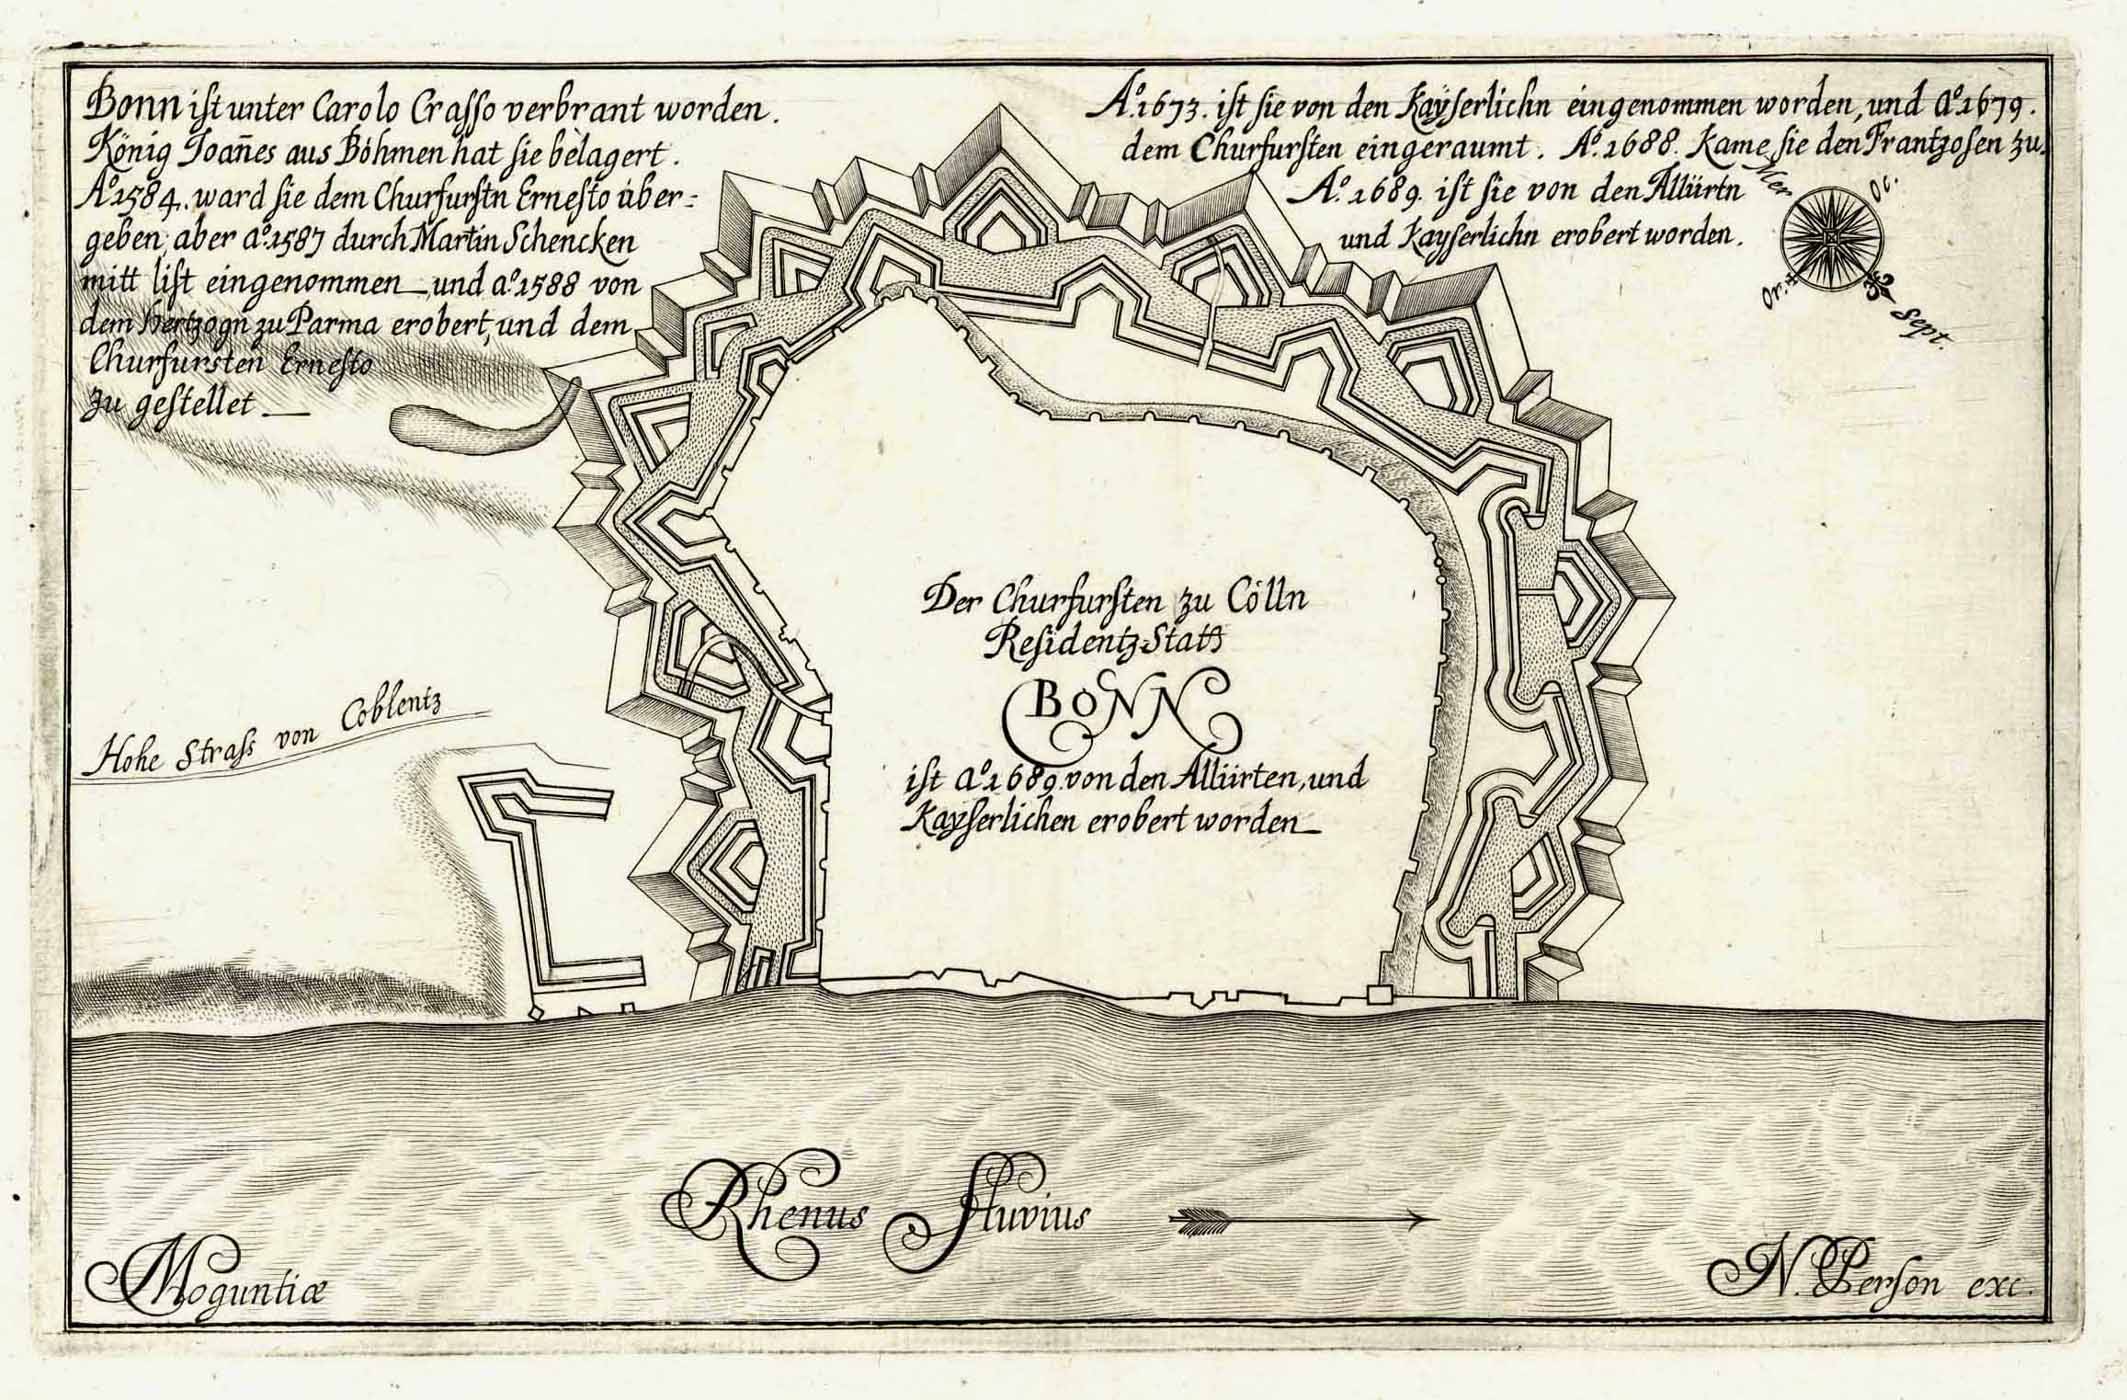 Bonn ist unter Carolo Crasso verbrant worden.
König Joañes aus Böhmen hat sie belagert.
Aº 1584. ward sie dem Churfurstn Ernesto über-
geben, aber aº. 1587 durch Martin Schencken
mitt list eingenommen und aº 1588 von
dem Hertzogn zu Parma erobert, und dem
Churfursten Ernesto
zu gestellet
Aº. 1673. ist sie von den Kaÿserlichn eingenommen worden, und aº 1679.
dem Churfursten eingeraumt. Aº. 1688. Kame sie den Frantzosen zu.
Aº. 1689. ist sie von den Alliirtn
und Kayserlichn erobert worden.
Mer
Oc.
Or.
Sept.
Der Churfursten zu Cölln
Residentz-Statt
BONN
ist aº 1689. von den Alliirten, und
Kayserlichen erobert worden
Hohe Strass von Coblentz
Rhenus Fluvius
Moguntiæ
N. Person exc.